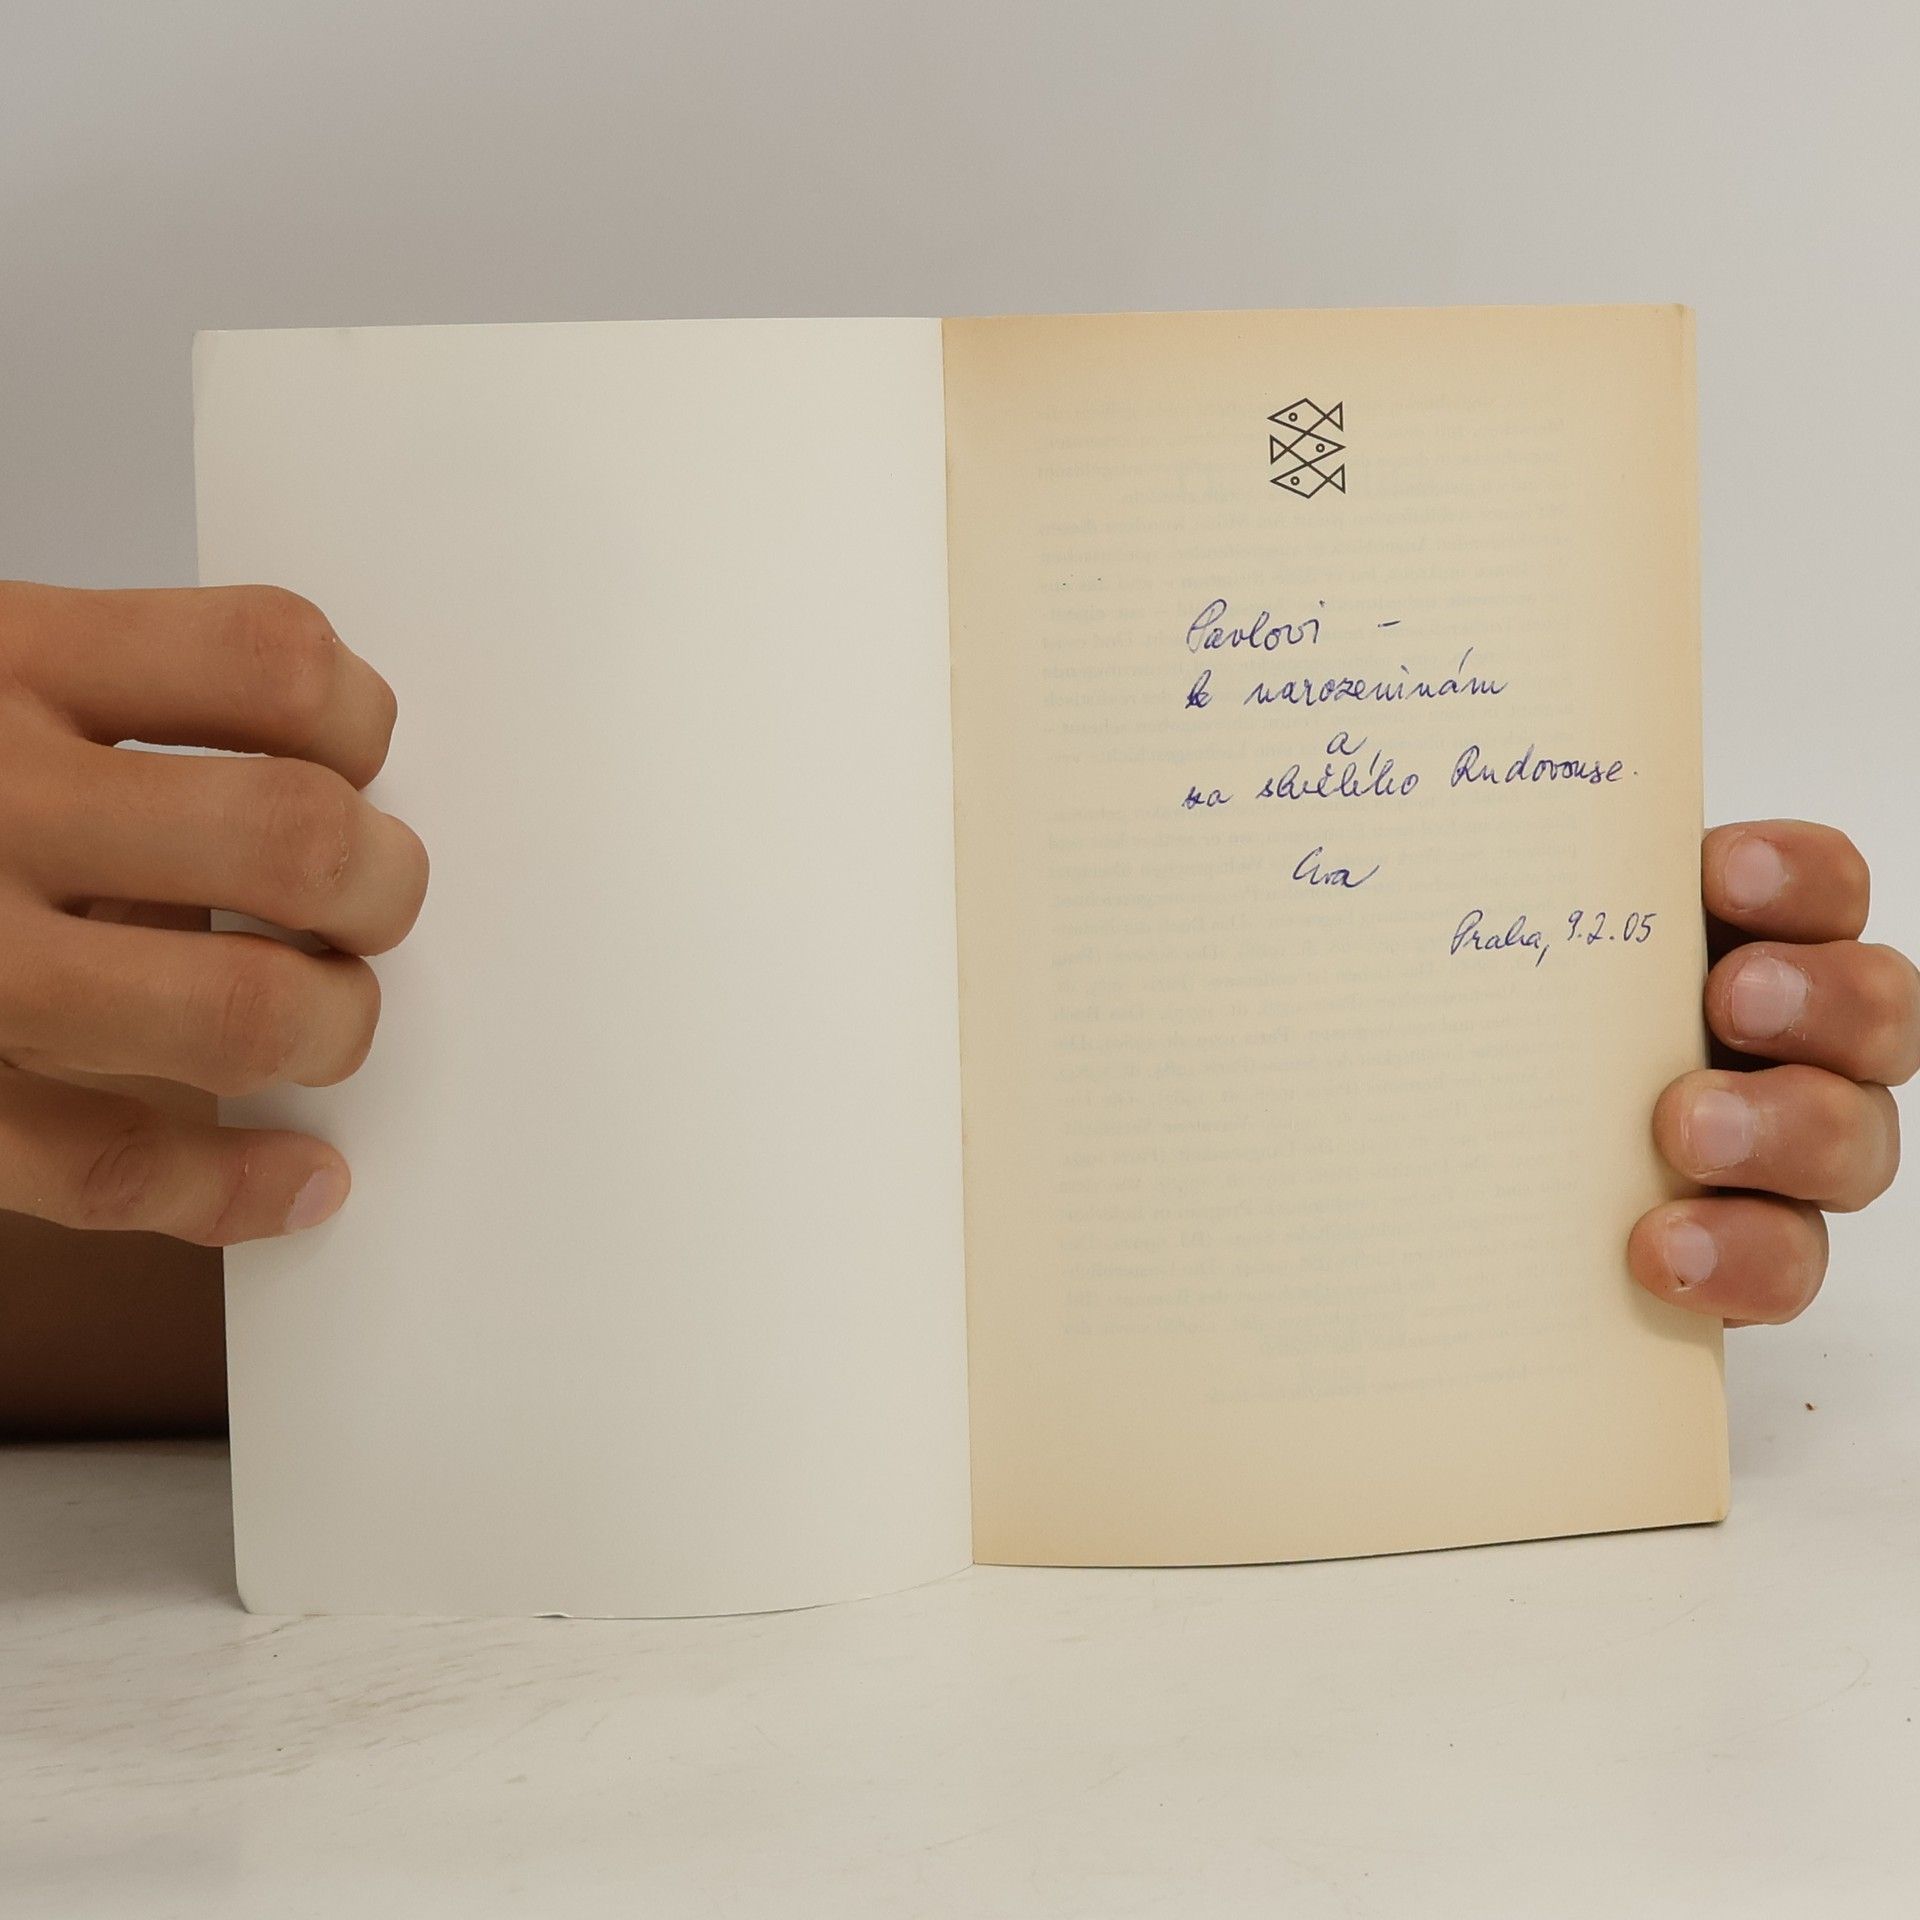 Pavlovi –
k narozeninám
a
za skvělého Rudovouse.
Eva
Praha, 9.2.05